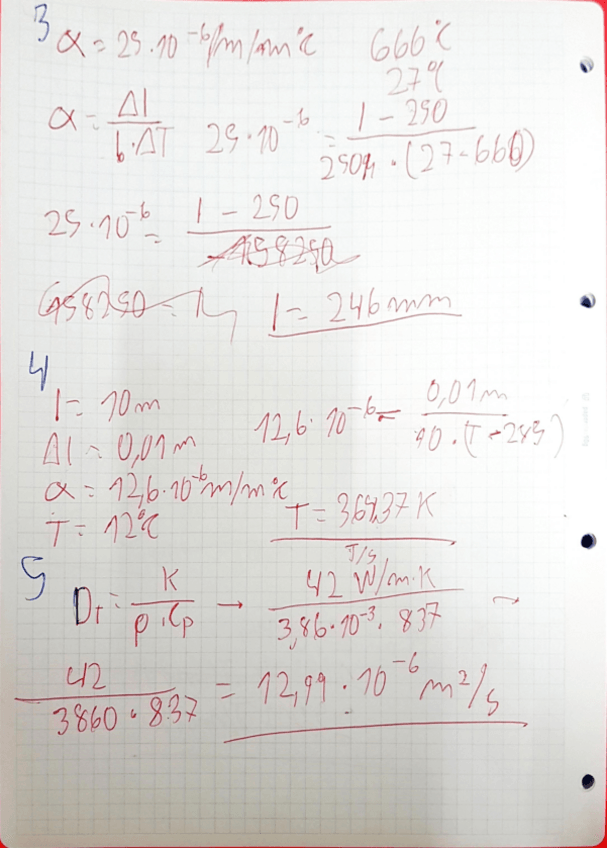 3 α = 25·10⁻⁶ m/m°C 666°C
27°C
α = Δl / l·ΔT 25·10⁻⁶ = l - 250 / 250 · (27-660)
25·10⁻⁶ = l - 250 / -158250
158250 = l l = 246 mm
4
l = 10 m 12,6·10⁻⁶ = 0,01 m / 10·(T-285)
Δl = 0,01 m
α = 12,6·10⁻⁶ m/m°C
T = 12°C T = 364,37 K
5 J/s
D_T = K / ρ·Cp → 42 W/m·K / 3,86·10⁻³·837 ~
42 / 3860·837 = 12,99·10⁻⁶ m²/s